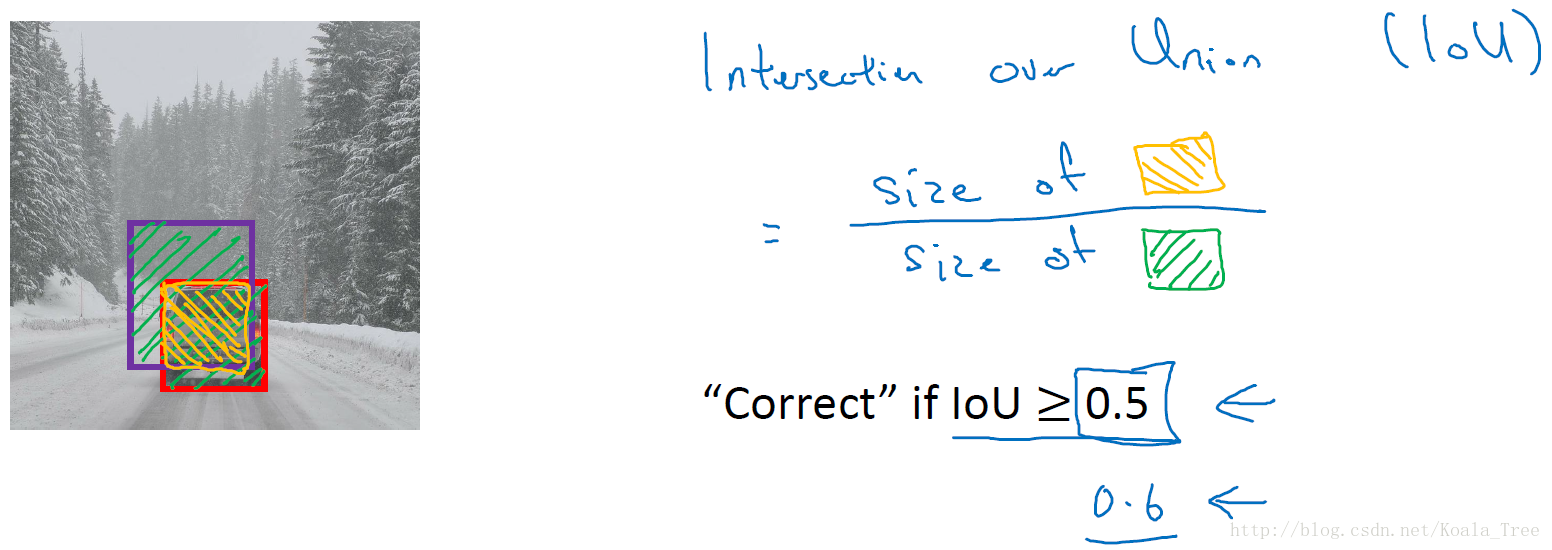 Intersection over Union (IoU)
size of
=
size of
“Correct” if IoU ≥ 0.5 ←
0.6 ←
http://blog.csdn.net/Koala_Tree